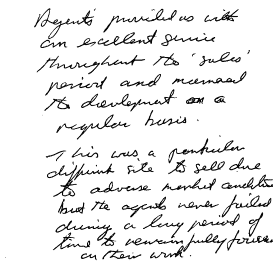 Agents provided us with
an excellent service
throughout the 'sales'
period and
the development on a
regular basis.
This was a particular
difficult site to sell due
to adverse market conditions
but the agents never failed
during a long period of
time to remain fully focused
on their work.